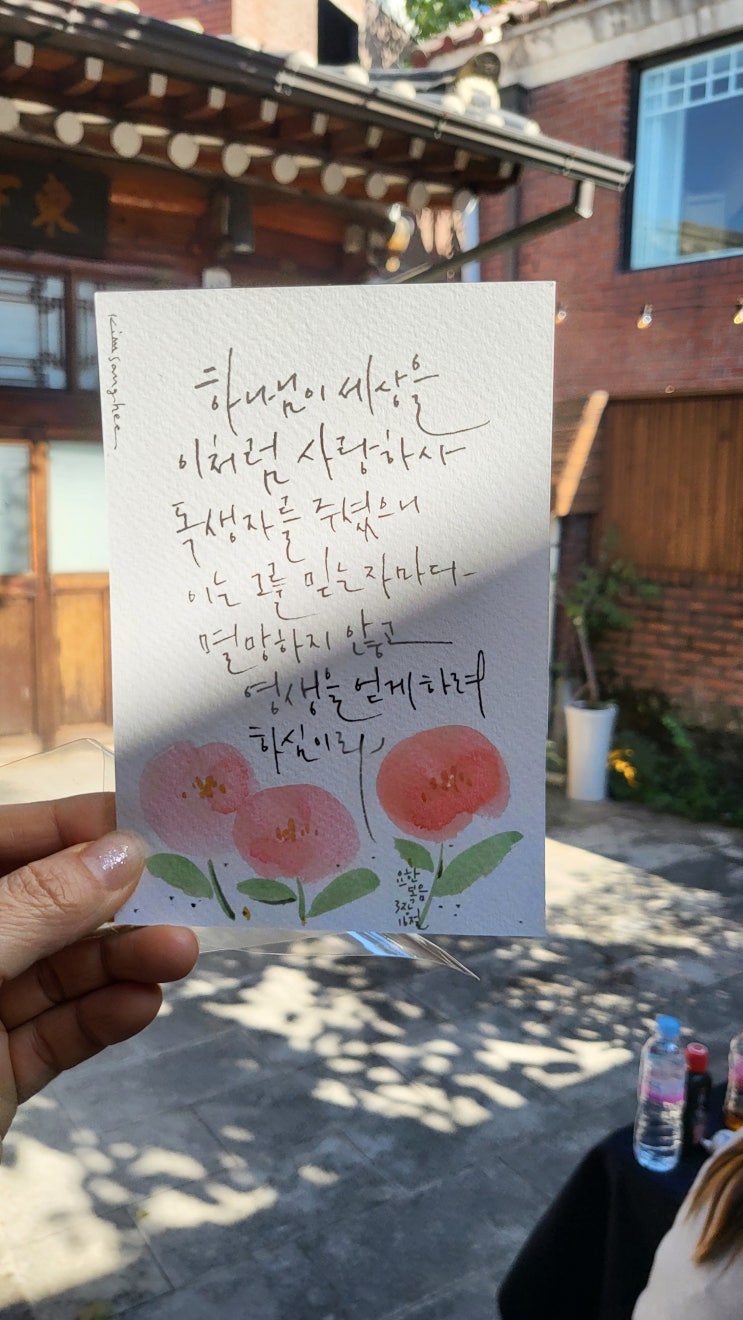 東
Kimsanghee
하나님이 세상을
이처럼 사랑하사
독생자를 주셨으니
이는 그를 믿는 자마다
멸망하지 않고
영생을 얻게 하려
하심이라
요한
복음
3장
16절